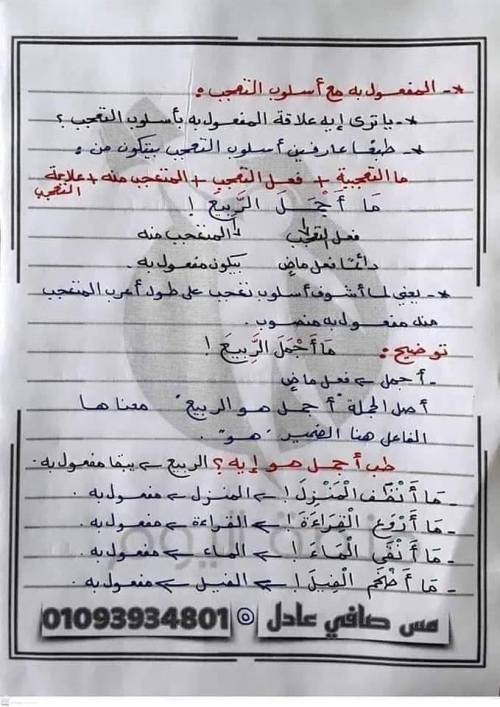 *- المفعول به مع أسلوب التعجب :
*- يا ترى إيه علاقة المفعول به بأسلوب التعجب ؟
*- طبعًا عارفين أسلوب التعجب بيتكون من :
ما التعجبية + فعل التعجب + المتعجب منه + علامة التعجب
مَا أَجْمَلَ الرَّبِيعَ !
فعل التعجب المتعجب منه
دائمًا فعل ماضٍ بيكون مفعول به
*- يعني لما أشوف أسلوب تعجب على طول أعرب المتعجب
منه مفعول به منصوب .
توضيح : مَا أَجْمَلَ الرَّبِيعَ !
- أجمل ← فعل ماضٍ
أصل الجملة "أجمل هو الربيع" معناها
الفاعل هنا الضمير "هو" .
طب أجمل هو إيه ؟ الربيع ← يبقا مفعول به .
- مَا أَنْظَفَ الْمَنْزِلَ ! ← المنزل ← مفعول به .
- مَا أَرْوَعَ الْقِرَاءَةَ ! ← القراءة ← مفعول به .
- مَا أَنْقَى الْمَاءَ ! ← الماء ← مفعول به .
- مَا أَضْخَمَ الْفِيلَ ! ← الفيل ← مفعول به .
مس صافي عادل © 01093934801